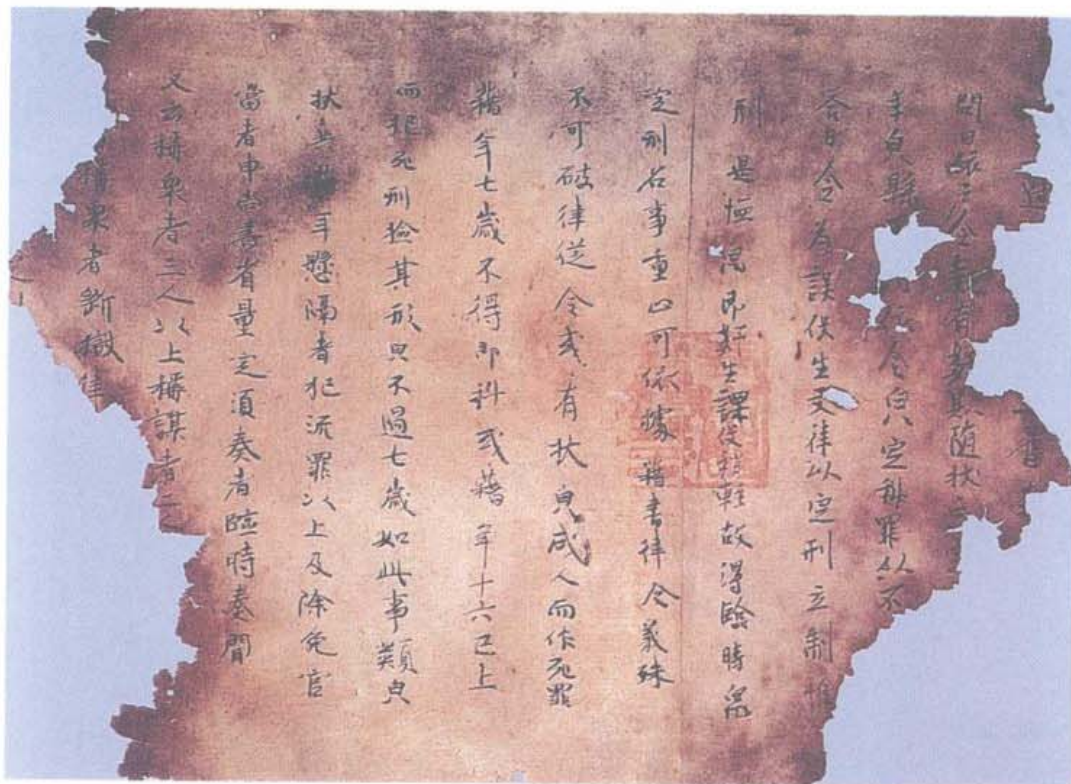 問曰依令疑有姧欺隨狀
年皃縣 令皃定科罪以不
答曰令為課伇生文律以定刑立制惟
刑是恤皃即姧生課伇稍輕故得臨時皃
定刑名事重止可依據籍書律令義殊
不可破律從令或有狀皃成人而作死罪
籍年七歲不得即科或籍年十六已上
而犯死刑撿其形皃不過七歲如此事類皃
狀共籍年懸隔者犯流罪以上及除免官
當者申尚書省量定須奏者臨時奏聞
又云稱衆者三人以上稱謀者二
稱衆者斷獄律